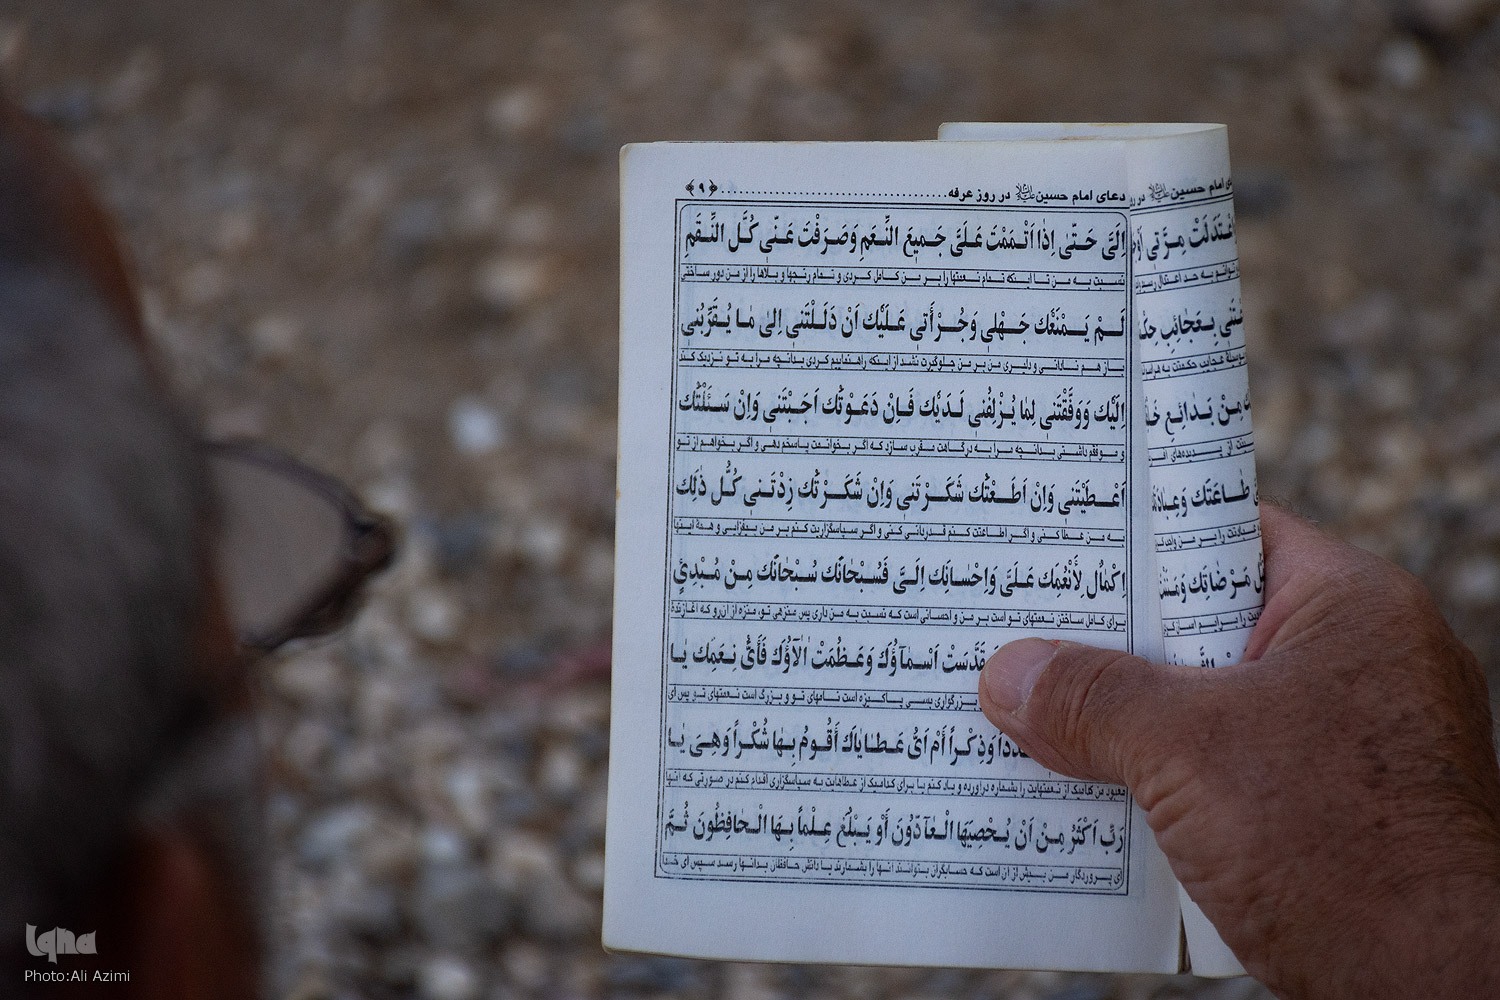 دعای امام حسین علیه‌السلام در روز عرفه ........................................ ﴿۹﴾
اِلَیَّ حَتّٰی اِذٰا اَتْمَمْتَ عَلَیَّ جَمیعَ النِّعَمِ وَصَرَفْتَ عَنّی کُلَّ النِّقَمِ
نسبت به من تا اینکه تمام نعمتها را بر من کامل کردی و تمام رنجها و بلاها را از من دور ساختی
لَمْ یَمْنَعْکَ جَهْلی وَجُرْأَتی عَلَیْکَ اَنْ دَلَلْتَنی اِلیٰ مٰا یُقَرِّبُنی
باز هم نادانی و دلیری من بر من جلوگیرت نشد از اینکه راهنماییم کردی بدانچه مرا به تو نزدیک کند
اِلَیْکَ وَوَفَّقْتَنی لِمٰا یُزْلِفُنی لَدَیْکَ فَاِنْ دَعَوْتُکَ اَجَبْتَنی وَاِنْ سَئَلْتُکَ
و موفقم داشتی بدانچه مرا به درگاهت مقرب سازد که اگر بخوانمت پاسخم دهی و اگر بخواهم از تو
اَعْطَیْتَنی وَاِنْ اَطَعْتُکَ شَکَرْتَنی وَاِنْ شَکَرْتُکَ زِدْتَنی کُلُّ ذٰلِکَ
به من عطا کنی و اگر اطاعتت کنم قدردانی کنی و اگر سپاسگزاریت کنم بر من بیفزایی و همهٔ اینها
اِکْمٰالٌ لِأَنْعُمِکَ عَلَیَّ وَاِحْسٰانِکَ اِلَیَّ فَسُبْحٰانَکَ سُبْحٰانَکَ مِنْ مُبْدِئٍ
برای کامل ساختن نعمتهای تو است بر من و احسانی است که نسبت به من داری پس منزهی تو، منزه از آن رو که آغازندهٔ
تَقَدَّسَتْ اَسْمٰآؤُکَ وَعَظُمَتْ اٰلاٰؤُکَ فَأَیُّ نِعَمِکَ یٰا
بزرگواری بسی پاکیزه است نامهای تو و بزرگ است نعمتهای تو پس ای
عَدَداً وَذِکْراً أَمْ اَیُّ عَطٰایٰاکَ أَقُومُ بِهٰا شُکْراً وَهِیَ یٰا
معبود من کدامیک از نعمتهایت را بشماره درآورده و یاد کنم یا برای کدامیک از عطاهایت به سپاسگزاری اقدام کنم در صورتی که آنها
رَبِّ اَکْثَرُ مِنْ اَنْ یُحْصِیَهَا الْعٰآدّوُنَ أَوْ یَبْلُغَ عِلْماً بِهَا الْحٰافِظُونَ ثُمَّ
ای پروردگار من بیش از آن است که حسابگران بتوانند آنها را بشمارند یا دانش حافظان بدانها رسد سپس ای خدا
امام حسین علیه‌السلام در
اعْتَدَلَتْ مِرَّتی
به حد اعتدال رسید
بِعَجٰائِبِ
عجایب حکمتت به
مِنْ بَدٰائِعِ
از پدیده‌های
طٰاعَتَکَ وَعِبٰادَتَکَ
عبادتت را بر من واجب
مَرْضٰاتِکَ
را برایم آسان
iqna
Photo:Ali Azimi